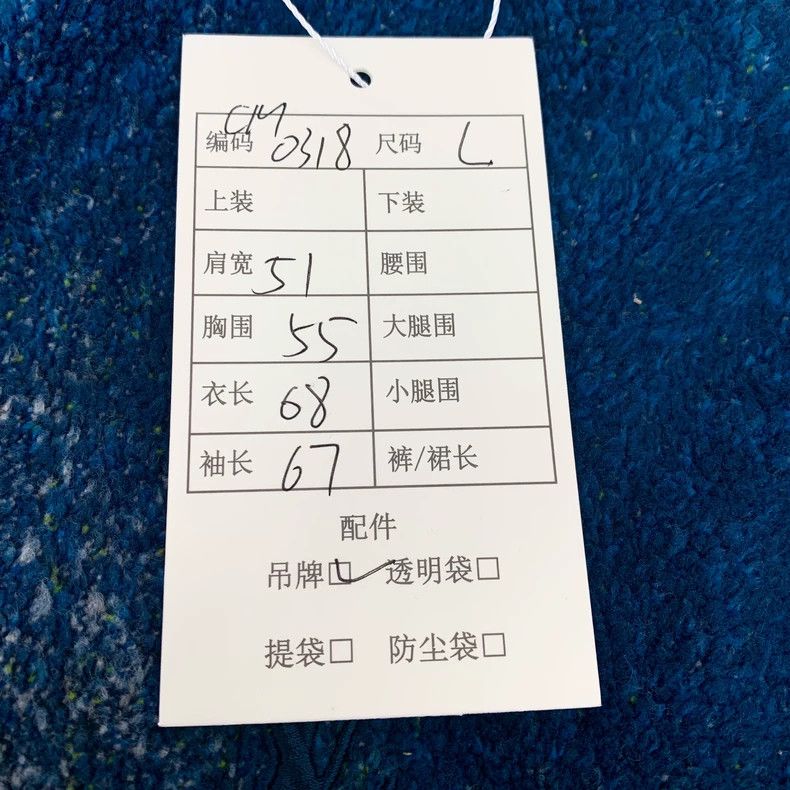 CM
编码 0318 尺码 L
上装 下装
肩宽 51 腰围
胸围 55 大腿围
衣长 68 小腿围
袖长 67 裤/裙长
配件
吊牌☑ 透明袋□
提袋□ 防尘袋□